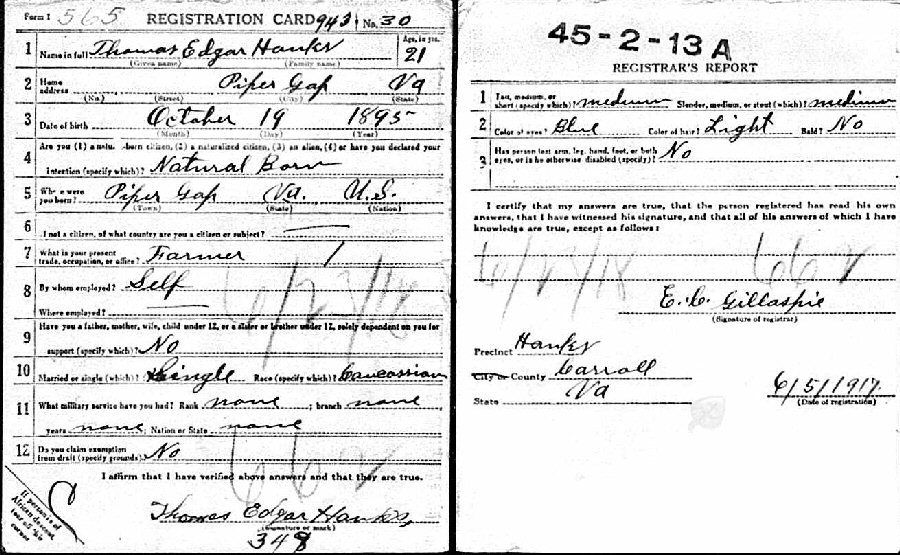 Form 1 565 REGISTRATION CARD 943 No. 30
1 Name in full Thomas Edgar Hanks Age, in yrs. 21
(Given name) (Family name)
2 Home address Piper Gap Va
(No.) (Street) (City) (State)
3 Date of birth October 19 1895
(Month) (Day) (Year)
4 Are you (1) a natural-born citizen, (2) a naturalized citizen, (3) an alien, (4) or have you declared your
intention (specify which)? Natural Born
5 Where were you born? Piper Gap Va. U.S.
(Town) (State) (Nation)
6 If not a citizen, of what country are you a citizen or subject?
7 What is your present trade, occupation, or office? Farmer
8 By whom employed? Self
Where employed?
9 Have you a father, mother, wife, child under 12, or a sister or brother under 12, solely dependent on you for
support (specify which)? No
10 Married or single (which)? Single Race (specify which)? Caucassian
11 What military service have you had? Rank none ; branch none ;
years none ; Nation or State none
12 Do you claim exemption from draft (specify grounds)? No
I affirm that I have verified above answers and that they are true.
Thomas Edgar Hanks,
(Signature or mark)
348
If person is of African descent, tear off this corner
6/27/18
662
45-2-13 A
REGISTRAR'S REPORT
1 Tall, medium, or short (specify which)? medium Slender, medium, or stout (which)? medium
2 Color of eyes? Blue Color of hair? Light Bald? No
3 Has person lost arm, leg, hand, foot, or both eyes, or is he otherwise disabled (specify)? No
I certify that my answers are true, that the person registered has read his own
answers, that I have witnessed his signature, and that all of his answers of which I have
knowledge are true, except as follows:
6/27/18 662
E. C. Gillaspie
(Signature of registrar)
Precinct Hanks
City or County Carroll
State Va
6/5/1917
(Date of registration)